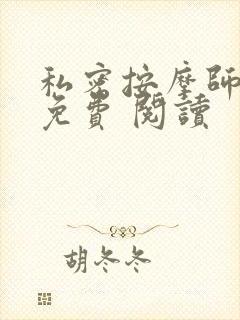 私密按摩師
免費 閱讀
胡冬冬